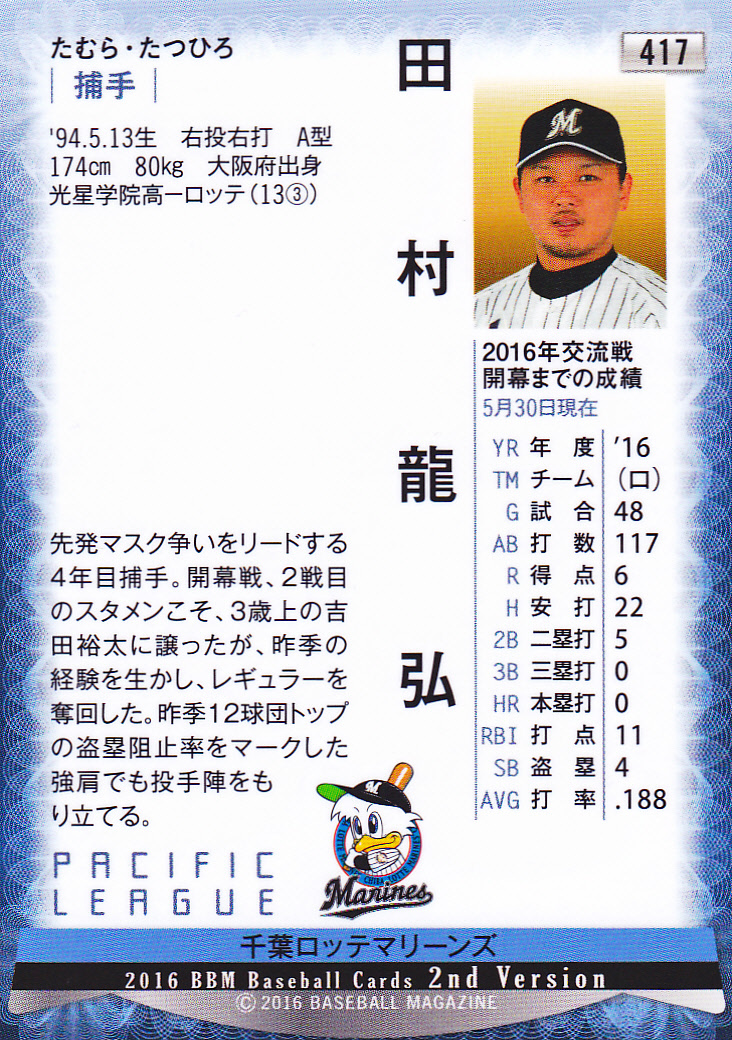 たむら・たつひろ
捕手
'94.5.13生　右投右打　A型
174cm　80kg　大阪府出身
光星学院高ーロッテ(13③)
田村龍弘
417
M
2016年交流戦
開幕までの成績
5月30日現在
YR 年度 '16
TM チーム (ロ)
G 試合 48
AB 打数 117
R 得点 6
H 安打 22
2B 二塁打 5
3B 三塁打 0
HR 本塁打 0
RBI 打点 11
SB 盗塁 4
AVG 打率 .188
先発マスク争いをリードする
4年目捕手。開幕戦、2戦目
のスタメンこそ、3歳上の吉
田裕太に譲ったが、昨季の
経験を生かし、レギュラーを
奪回した。昨季12球団トップ
の盗塁阻止率をマークした
強肩でも投手陣をも
り立てる。
PACIFIC
LEAGUE
M
CHIBA LOTTE MARINES
Marines
千葉ロッテマリーンズ
2016 BBM Baseball Cards 2nd Version
© 2016 BASEBALL MAGAZINE